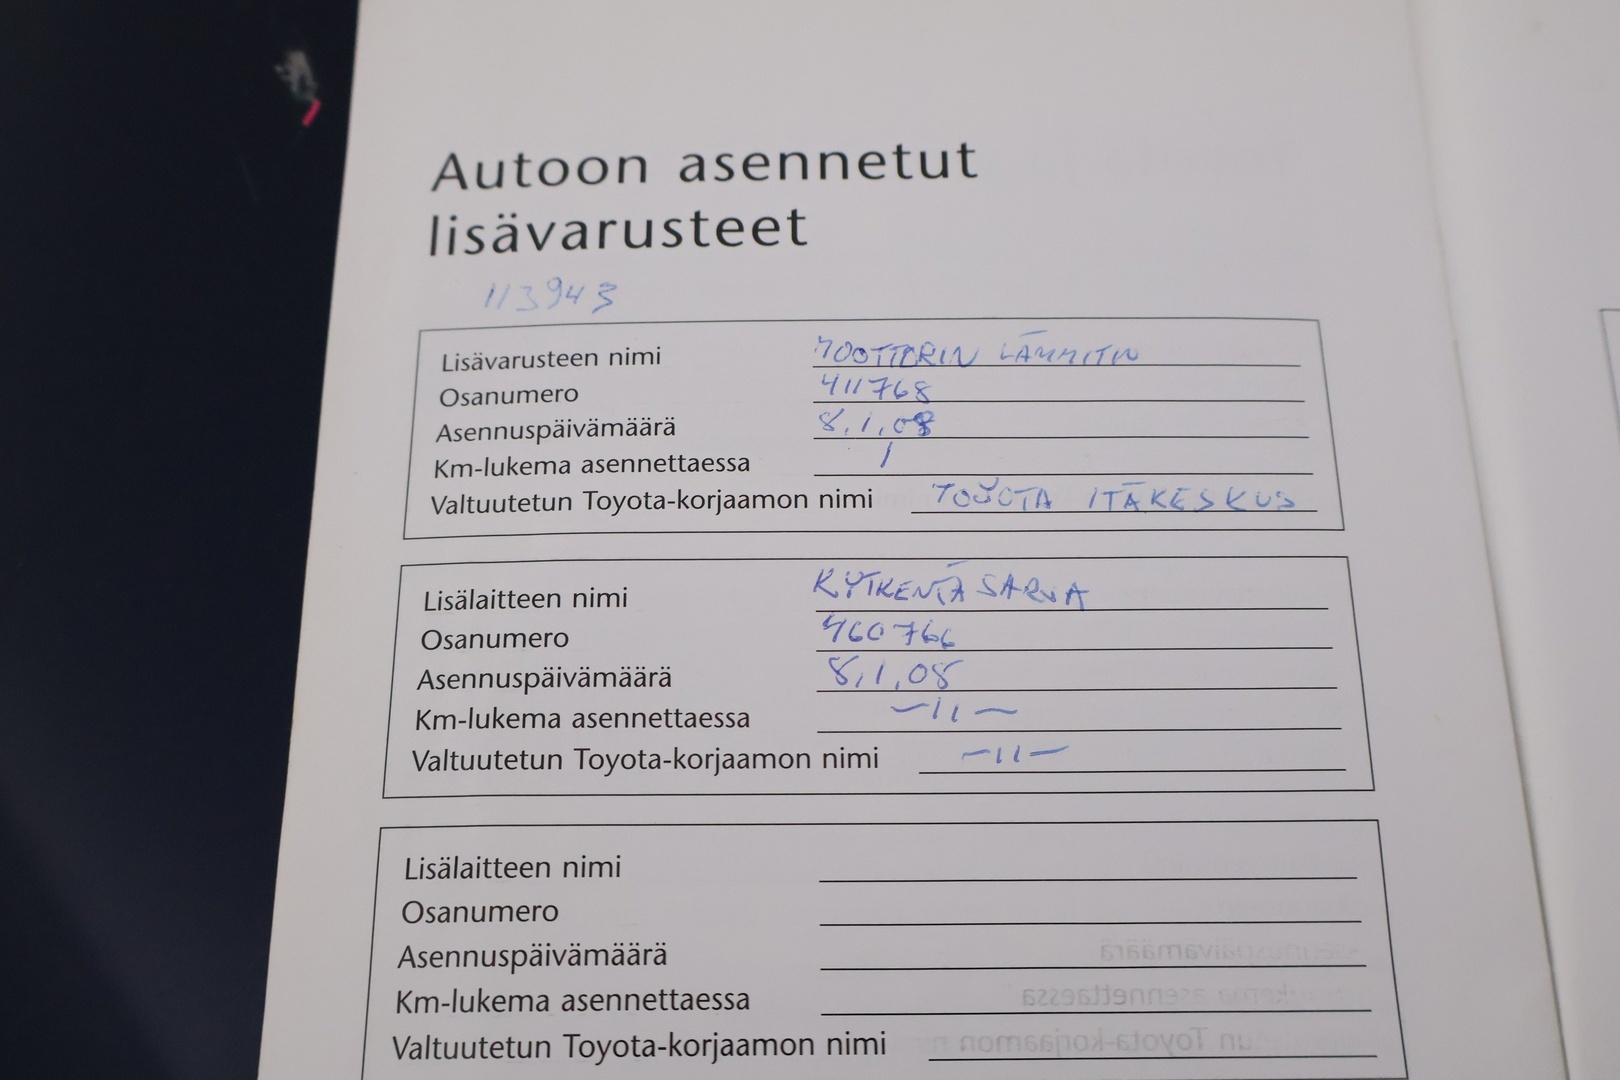 Autoon asennetut
lisävarusteet
113943
Lisävarusteen nimi MOOTTORIN LÄMMITIN
Osanumero 411768
Asennuspäivämäärä 8.1.08
Km-lukema asennettaessa /
Valtuutetun Toyota-korjaamon nimi TOYOTA ITÄKESKUS
Lisälaitteen nimi KYTKENTÄSARJA
Osanumero 460766
Asennuspäivämäärä 8.1.08
Km-lukema asennettaessa —11—
Valtuutetun Toyota-korjaamon nimi —11—
Lisälaitteen nimi
Osanumero
Asennuspäivämäärä
Km-lukema asennettaessa
Valtuutetun Toyota-korjaamon nimi